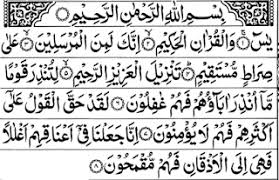 بِسْمِ اللّٰهِ الرَّحْمٰنِ الرَّحِیْمِ
یٰسٓ ۚ﴿۱﴾ وَ الْقُرْاٰنِ الْحَكِیْمِ ۙ﴿۲﴾ اِنَّكَ لَمِنَ الْمُرْسَلِیْنَ ۙ﴿۳﴾ عَلٰی
صِرَاطٍ مُّسْتَقِیْمٍ ؕ﴿۴﴾ تَنْزِیْلَ الْعَزِیْزِ الرَّحِیْمِ ۙ﴿۵﴾ لِتُنْذِرَ قَوْمًا
مَّاۤ اُنْذِرَ اٰبَآؤُهُمْ فَهُمْ غٰفِلُوْنَ ﴿۶﴾ لَقَدْ حَقَّ الْقَوْلُ عَلٰۤی
اَكْثَرِهِمْ فَهُمْ لَا یُؤْمِنُوْنَ ﴿۷﴾ اِنَّا جَعَلْنَا فِیْۤ اَعْنَاقِهِمْ اَغْلٰلًا
فَهِیَ اِلَی الْاَذْقَانِ فَهُمْ مُّقْمَحُوْنَ ﴿۸﴾